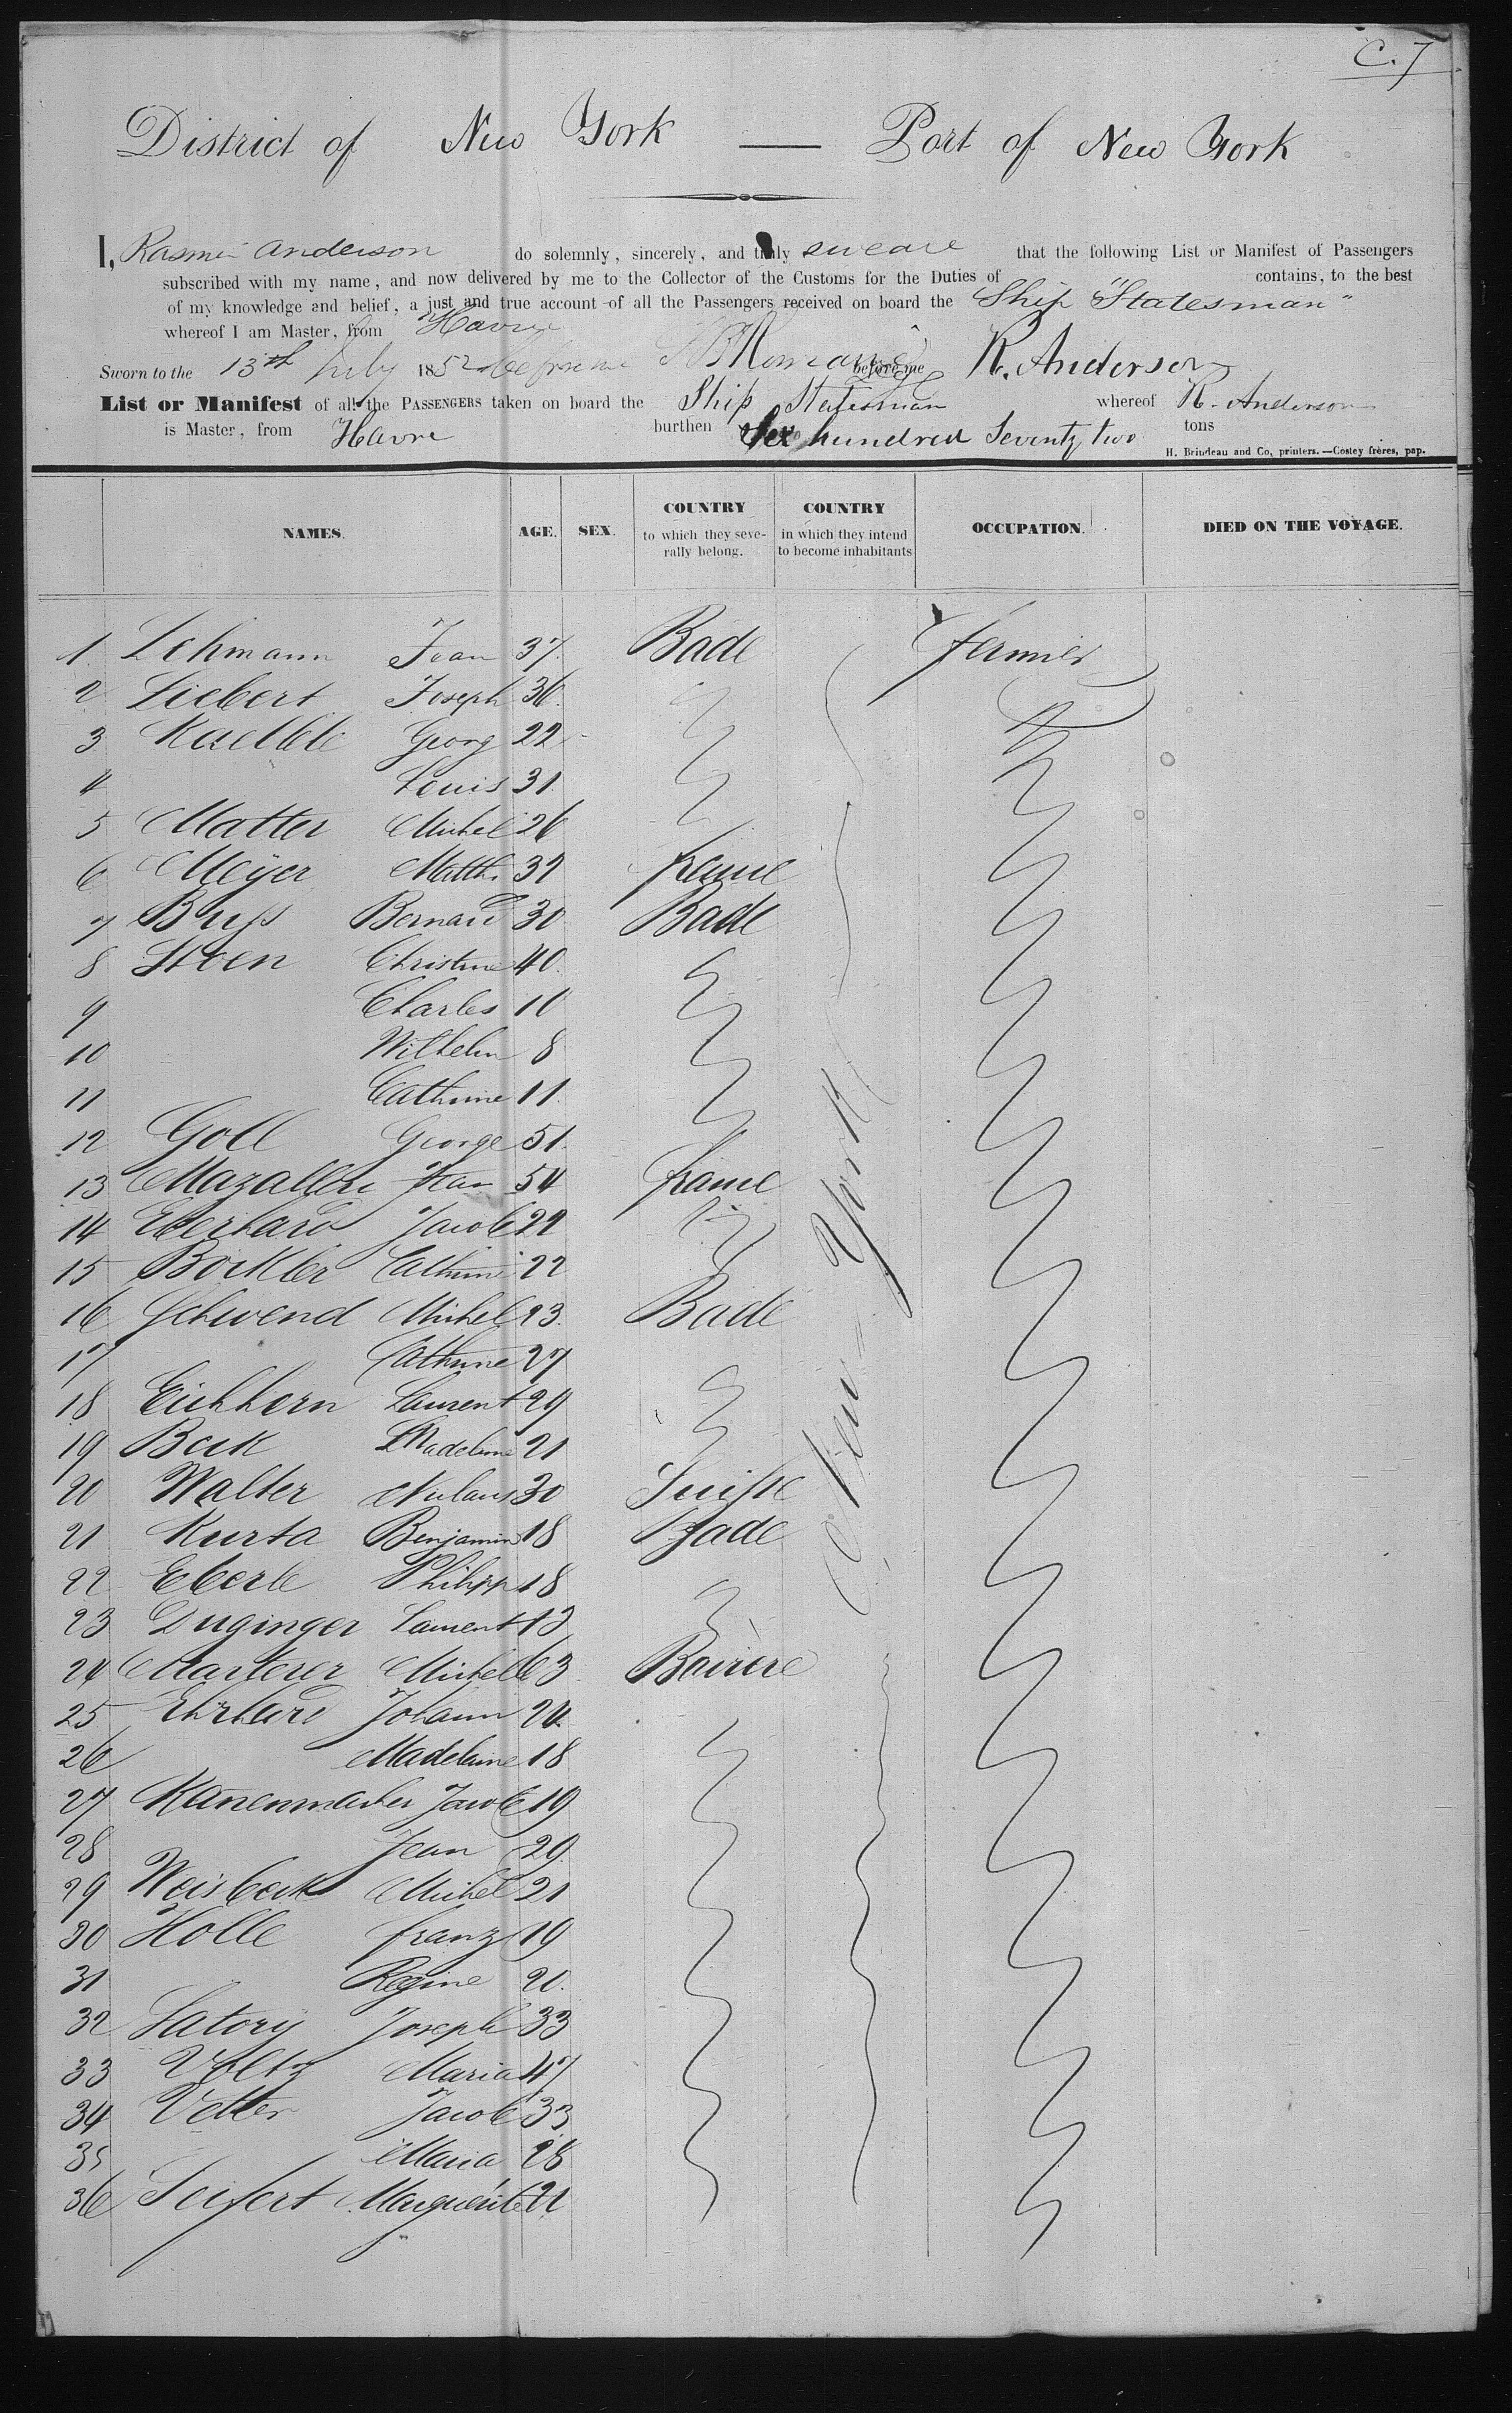 C. 7
District of New York — Port of New York
I, Rasmus Anderson do solemnly, sincerely, and truly sweare that the following List or Manifest of Passengers
subscribed with my name, and now delivered by me to the Collector of the Customs for the Duties of contains, to the best
of my knowledge and belief, a just and true account of all the Passengers received on board the Ship "Statesman"
whereof I am Master, from Havre
Sworn to the 13th July 1852 before me before me R. Anderson
List or Manifest of all the PASSENGERS taken on board the Ship Statesman whereof R. Anderson
is Master, from Havre burthen Six hundred Seventy two tons
H. Brindeau and Co, printers. — Costey frères, pap.
NAMES. AGE. SEX. COUNTRY to which they severally belong. COUNTRY in which they intend to become inhabitants OCCUPATION. DIED ON THE VOYAGE.
1 Lehmann Jean 37 Bade fermier
2 Liebert Joseph 36
3 Kaelble Georg 22
4 Louis 31
5 Matter Michel 26
6 Meyer Matth. 39 france
7 Buss Bernard 30 Bade
8 Stoen Christine 40
9 Charles 10
10 Wilhelm 8
11 Cathrine 11
12 Goll George 51
13 Jean 54 france
14 Eberhard Jacob 29
15 Böckler Cathrine 22
16 Schwend Michel 23 Bade
17 Cathrine 27
18 Eichhorn Laurent 29
19 Beck Madeleine 21
20 Walter Niclaus 30 Suisse
21 Kurta Benjamin 18 Bade
22 Eberle Philipp 18
23 Duginger Laurent 13
24 Marterer Michel 63 Bavière
25 Ehrhard Johann 24
26 Madelaine 18
27 Kanenmacher Jacob 19
28 Jean 29
29 Weisbeck Michel 21
30 Holle franz 19
31 Regine 20
32 Satory Joseph 33
33 Voltz Maria 47
34 Vetter Jacob 33
35 Maria 28
36 Seifert Marguérite 21
New-York